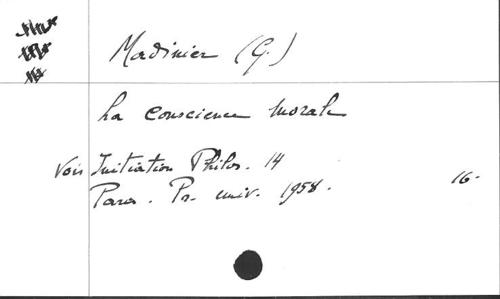 Madinier (G.)
La conscience morale
Voir Initiation Philos. 14
Paris. Pr. univ. 1958. 16-